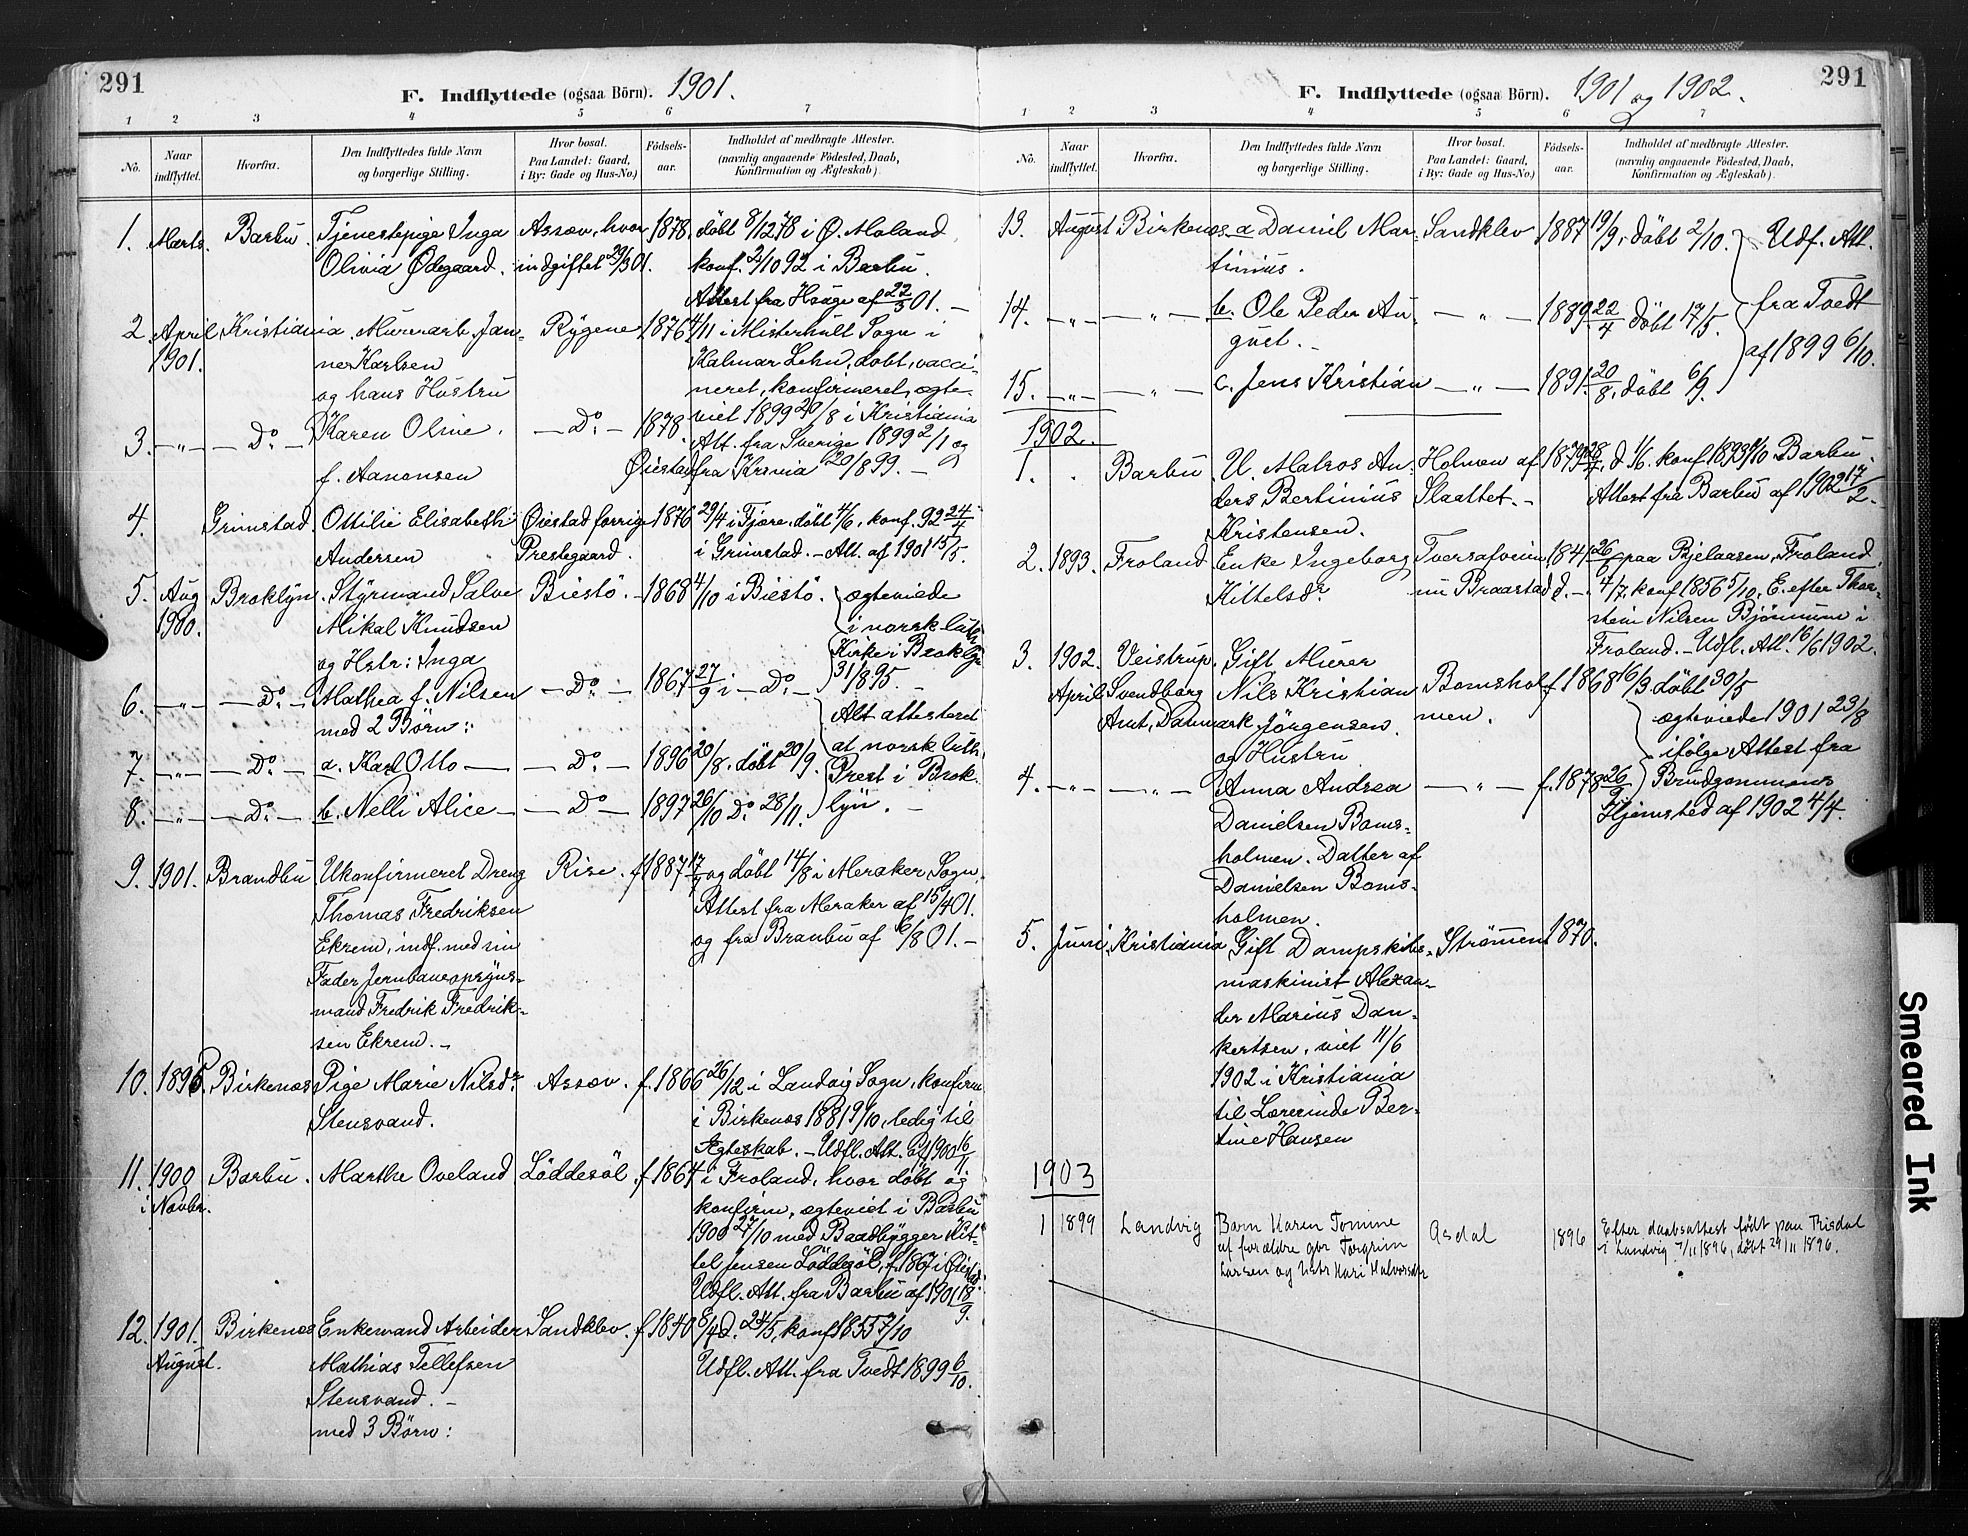 291
F. Indflyttede (ogsaa Börn). 1901.
1 2 3 4 5 6 7
No.
Naar indflyttet.
Hvorfra.
Den Indflyttedes fulde Navn og borgerlige Stilling.
Hvor bosat. Paa Landet: Gaard, i By: Gade og Hus-No.)
Födsels-aar.
Indholdet af medbragte Attester. (navnlig angaaende Födested, Daab, Konfirmation og Ægteskab).
1. Marts. Barbu. Tjenestepige Inga Assev, hvor 1878. döbt 8/12 78 i Ø. Moland
Olivia Ødegaard. indgiftet 29/3 01. konf. 2/10 92 i Barbu.
Attest fra Hauge af 22/3 01. —
2. April Kristiania. Murerarb. Jan- Rygene 1876 4/11 i Misterhult Sogn i
1901. ner Karlsen Kalmar Lehn, döbt, vacci-
og hans Hustru neret, konfirmeret, ægte-
3. —„— — Do. — Karen Oline. — Do. — 1878. viet 1899 29/8 i Kristiania
Att. fra Sverige 1899 2/1 og
f. Aanonsen Øiestad fra Krania 29/8 99. —
4. Grimstad. Ottilie Elisabeth Øiestad forrige 1876 29/4 i Fjære. döbt 4/6, konf. 92 24/4
Andersen Prestegaard. i Grimstad. — Att. af 1901 15/5.
5. Aug Broklyn. Styrmand Salve Biestö. 1868 4/10 i Biestö. ægteviede
1900. Mikal Knudsen i norsk luth.
og Hstr: Inga Kirke i Broklyn
6. —„— — Do. — Mathea f. Nilsen — Do. — 1867 27/9 i — Do. — 31/8 95.
med 2 Börn: Alt attesteret
7. —„— — Do. — a. Karl Otto — — Do. — 1896 20/8. döbt 20/9. at norsk luth.
Prest i Brok-
8. —„— — Do. — b. Nelli Alice — — Do — 1897 26/10 Do. 28/11. lyn. —
9. 1901. Brandbu Ukonfirmeret Dreng Rise. f. 1887 17/7 og döbt 14/8 i Meraker Sogn.
Thomas Fredriksen Attest fra Meraker af 15/4 01.
Ekrem, indf. med sin og fra Branbu af 6/8 01. —
Fader Jernbaneopsyns-
mand Fredrik Fredrik-
sen Ekrem. —
10. 1895. Birkenæs Pige Marie Nilsdr. Assev. f. 1866 26/12 i Landvig Sogn, konfirm.
Stensvand. i Birkenæs 1881 9/10, ledig til
Ægteskab. — Udfl. Att. af 1900 6/11.
11. 1900 Barbu. Marthe Oveland Löddesöl. f. 1864 i Froland, hvor döbt og
i Novbr. konfirm., ægteviet i Barbu
1900 27/10 med Baadbygger Kit-
tel Jensen Löddesöl, f. 1867 i Øiestad.
Udfl. Att. fra Barbu af 1901 18/9.
12. 1901. Birkenæs Enkemand Arbeider Sandklev. f. 1840 8/4 d. 24/5, konf. 1855 7/10
August. Mathias Tellefsen Udfl. Att. fra Tvedt 1899 6/10.
Stensvand. —
med 3 Börn:
291
F. Indflyttede (ogsaa Börn). 1901 og 1902.
1 2 3 4 5 6 7
No.
Naar indflyttet.
Hvorfra.
Den Indflyttedes fulde Navn og borgerlige Stilling.
Hvor bosat. Paa Landet: Gaard, i By: Gade og Hus-No.)
Födsels-aar.
Indholdet af medbragte Attester. (navnlig angaaende Födested, Daab, Konfirmation og Ægteskab).
13. August Birkenæs. a. Daniel Mar- Sandklev 1887 19/9, döbt 2/10. Udf. Att.
tinius.
14. —„— — „ — b. Ole Peder Au- — „ — 1889. 22/4 döbt 17/5. fra Tvedt
gust. — af 1899 6/10.
15. —„— — „ — c. Jens Kristian — „ — 1891. 20/8, döbt 6/9.
1902.
1. Barbu. U. Matros An- Holmen af 1879 28/4, d. 1/6. konf. 1893 8/10 Barbu.
ders Bertinius Slaattet. — Attest fra Barbu af 1902 17/2.
Kristensen.
2. 1893. Froland Enke Ingeborg Tversafveien, 1841 26/6 paa Bjelaasen, Froland,
Kittelsdr. nu Braastad d. —. 4/7. konf 1856 5/10. E. efter Thor-
stein Nilsen Bjönnum i
Froland. — Udfl. Att. 16/6 1902.
3. 1902. Veistrup, Gift Murer
April Svendborg Nils Kristian Bomshol- f. 1868 16/3 döbt 30/5
Amt, Danmark. Jörgensen. men. ægteviede 1901 23/8
og Hustru ifölge Attest fra
4. —„— — „ — Anna Andrea — „ — f. 1878 26/9 Brudgommens
Danielsen Boms- Hjemsted af 1902 4/4.
holmen. Datter af
Danielsen Boms-
holmen.
5. Juni Kristiania Gift Dampskibs- Strömen 1870.
maskinist Alexan-
der Marius Dan-
kertsen, viet 11/6
1902 i Kristiania
til Lærerinde Ber-
tine Hansen
1903
1 1899 Landvig Barn Karen Tomine Asdal 1896 Efter daabsattest födt paa Trisdal
af forældre gbr Torgrim i Landvig 7/11 1896, döbt 29/11 1896.
Larsen og Hstr Kari Halvorsdtr
Smeared Ink